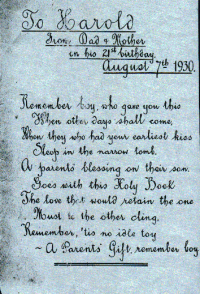 To Harold
From Dad & Mother
on his 21st birthday
August 7th 1930.
Remember boy, who gave you this
When other days shall come,
When they who had your earliest kiss
Sleep in the narrow tomb.
A parents' blessing on their son.
Goes with this Holy Book
The love that would retain the one
Must to the other cling.
Remember, 'tis no idle toy
~ A Parents' Gift, remember boy